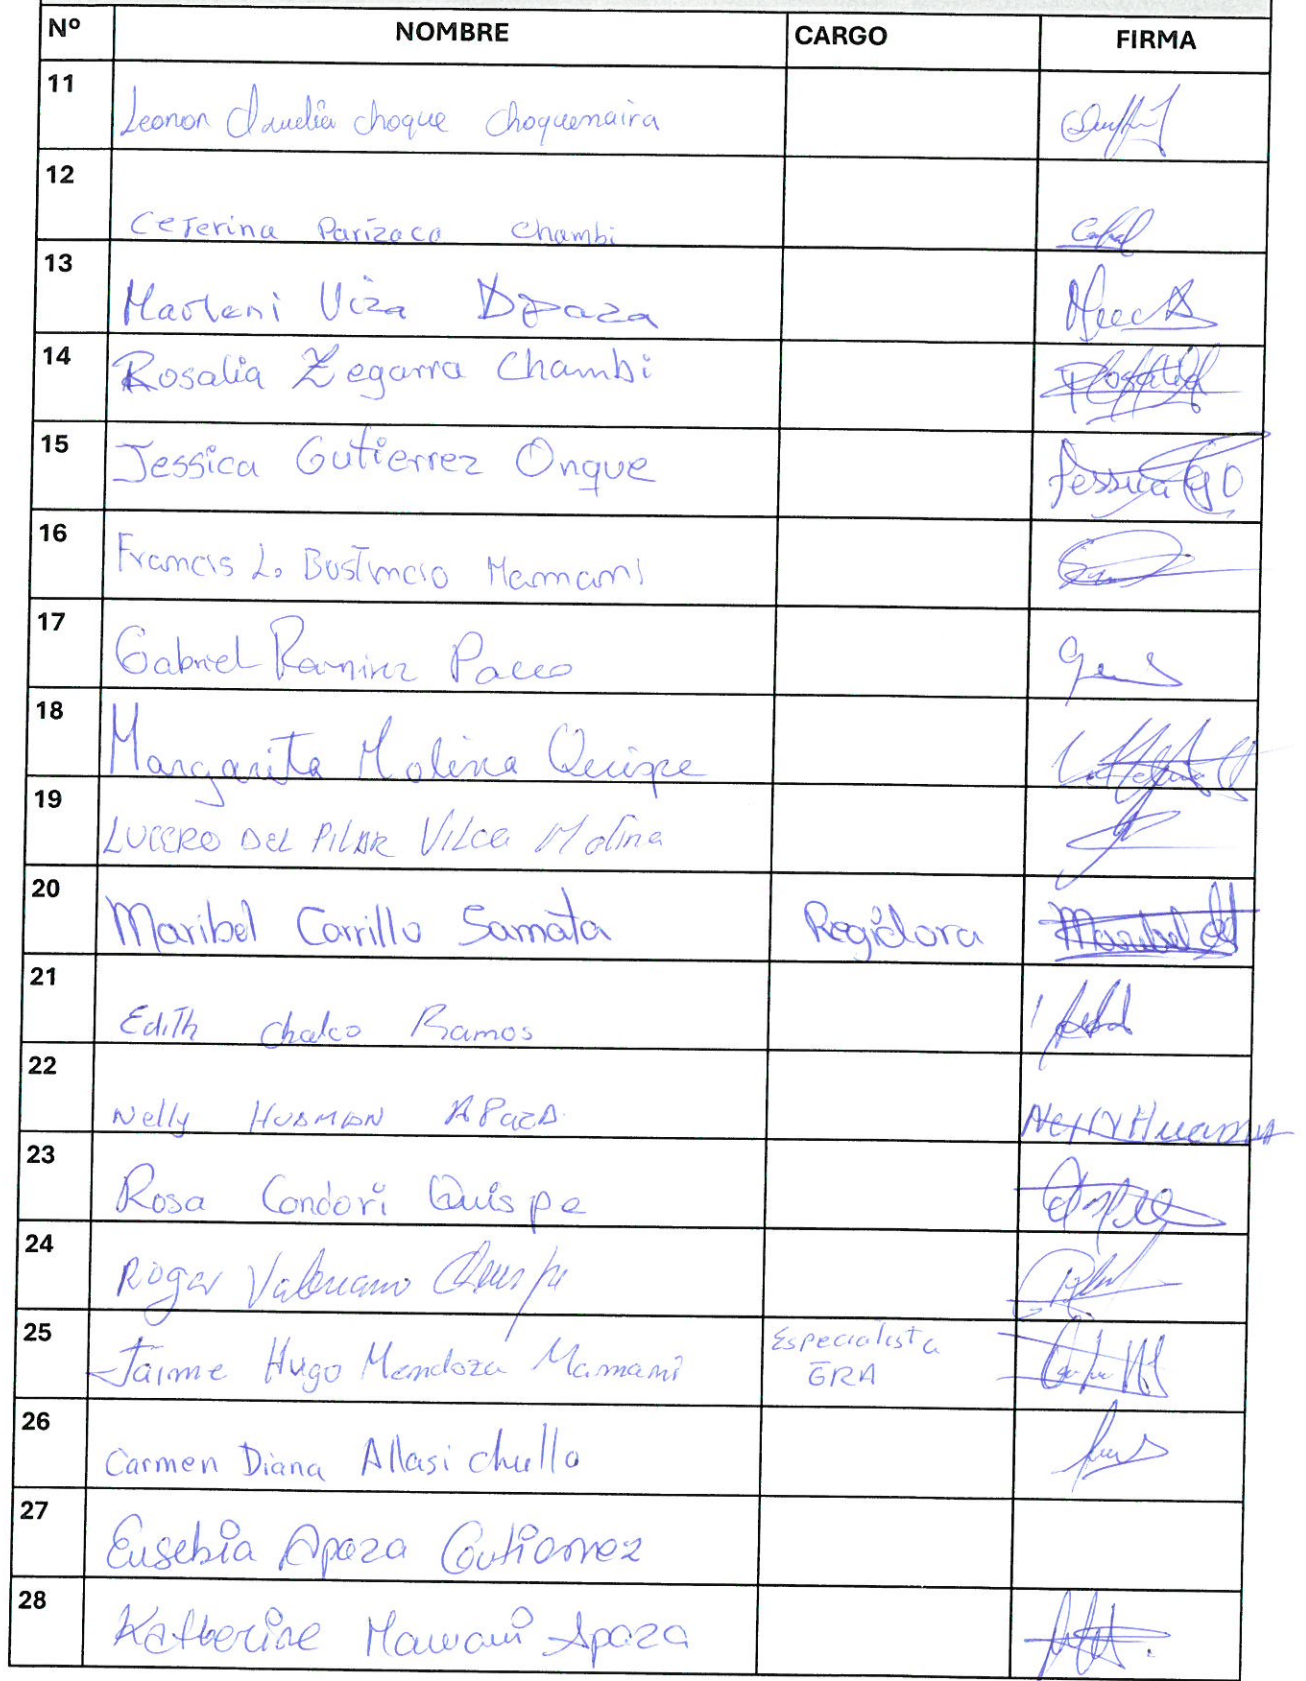 Nº NOMBRE CARGO FIRMA
11 Leonor Claudia choque choquemaira
12 Ceferina Parizaca Chambi
13 Marleni Viza Apaza
14 Rosalia Zegarra Chambi
15 Jessica Gutierrez Onque Jessica GO
16 Francis L. Bustincio Mamani
17 Gabriel Ramirez Pacco
18 Margarita Molina Quispe
19 LUCERO DEL PILAR Vilca Molina
20 Maribel Carrillo Samata Regidora Maribel
21 Edith chalco Ramos
22 Nelly HUAMAN APAZA Nelly Huaman
23 Rosa Condori Quispe
24 Roger Valeriano Quispe
25 Jaime Hugo Mendoza Mamani Especialista
GRA
26 Carmen Diana Allasi chullo
27 Eusebia Apaza Gutierrez
28 Katherine Mamani Apaza